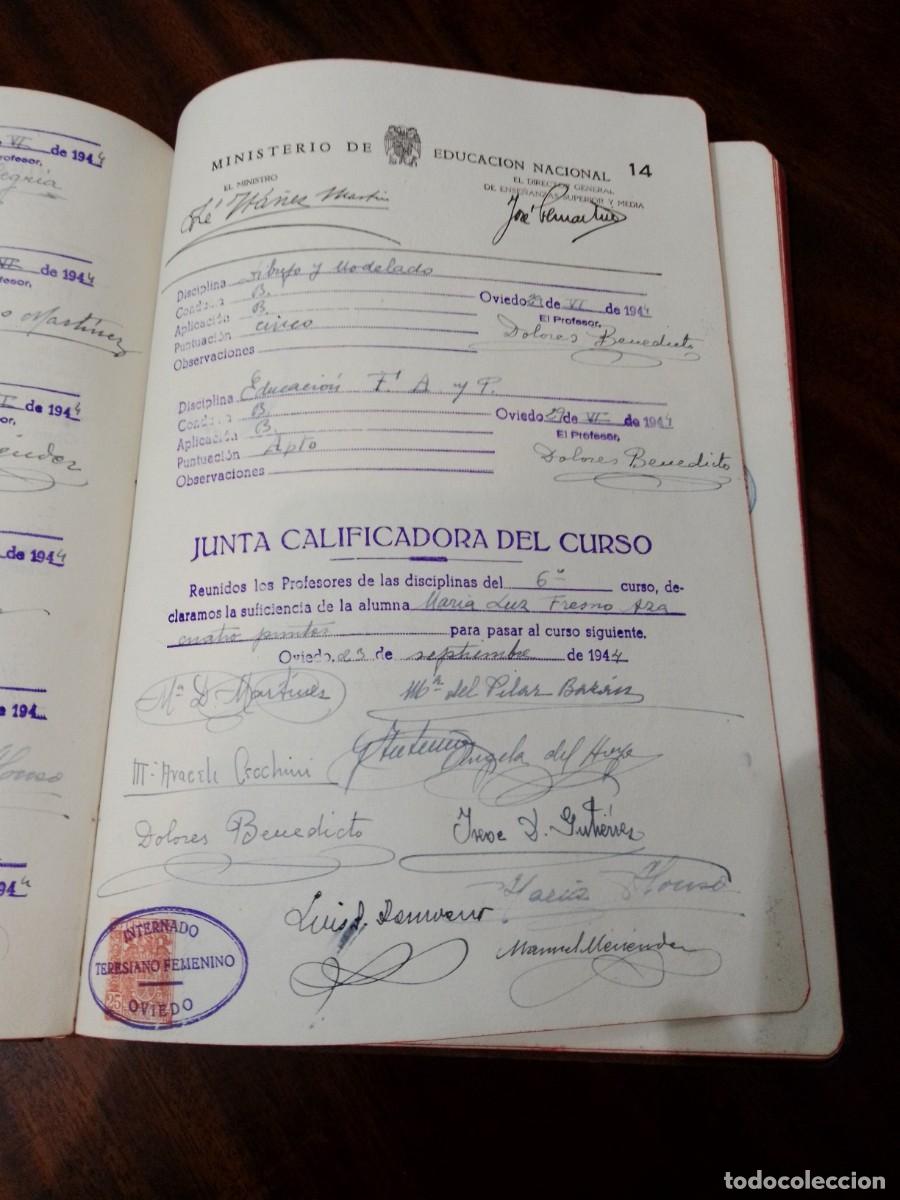 VI de 1944
Profesor,
egria
VI de 1944
fesor,
o Martínez
de 1944
or,
éndez
de 1944
e 194
Alonso
94
MINISTERIO DE EDUCACION NACIONAL 14
EL MINISTRO
José Ibáñez Martín
EL DIRECTOR GENERAL
DE ENSEÑANZAS SUPERIOR Y MEDIA
José Pemartín
Disciplina Dibujo y Modelado
Conducta B.
Aplicación B.
Puntuación cinco
Observaciones
Oviedo 29 de VI de 1944
El Profesor,
Dolores Benedicto
Disciplina Educación F. A y P.
Conducta B.
Aplicación B.
Puntuación Apto
Observaciones
Oviedo 29 de VI de 1944
El Profesor,
Dolores Benedicto
JUNTA CALIFICADORA DEL CURSO
Reunidos los Profesores de las disciplinas del 6º curso, de-
claramos la suficiencia de la alumna Maria Luz Fresno Aza
cuatro puntos para pasar al curso siguiente.
Oviedo, 23 de septiembre de 1944
Mª D. Martínez Mª del Pilar Bazán
Mª Araceli Cecchini Angela del Hoyo
Dolores Benedicto Irene D. Gutiérrez
María Alonso
Luis
Manuel Menéndez
INTERNADO
TERESIANO FEMENINO
OVIEDO
25
todocoleccion